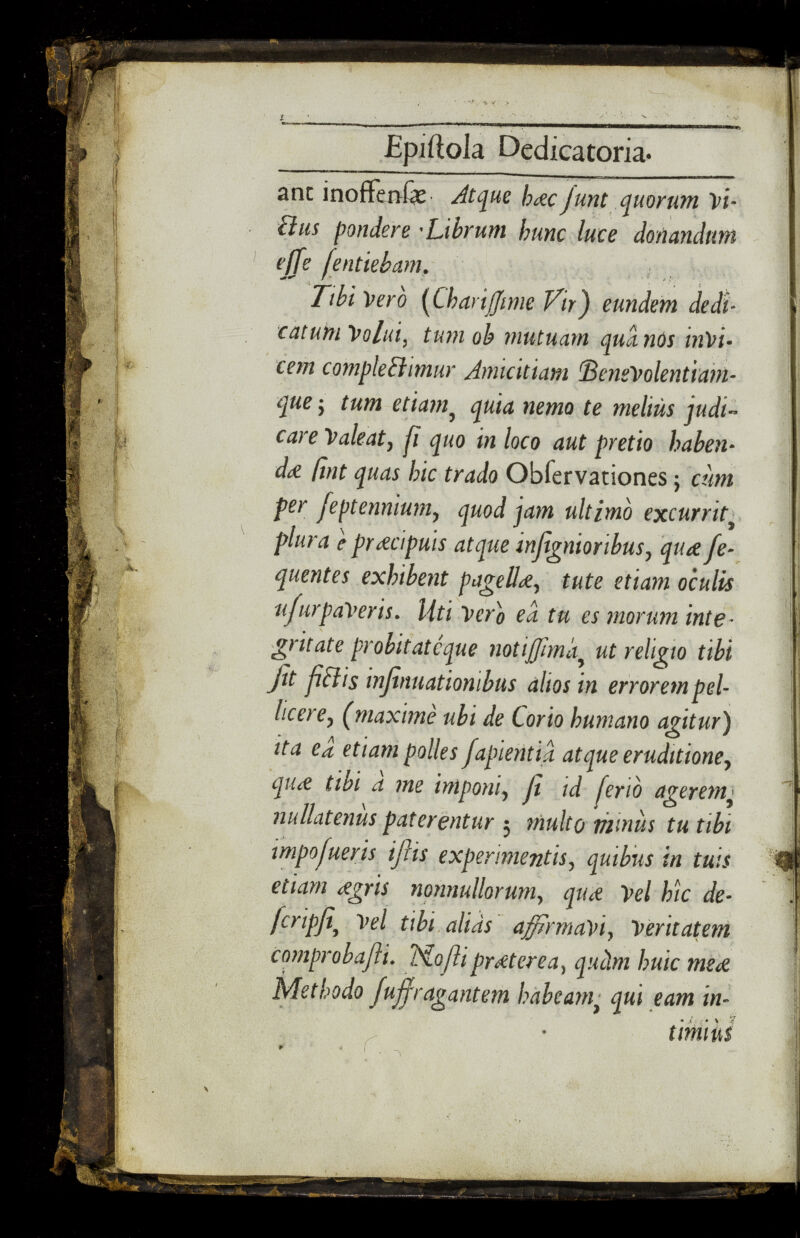 Epiſtola Dedicatoria.
ant inoffenſæ. Atque hæc ſunt quorum vi-
ctus pondere Librum hunc luce donandum
eſſe ſentiebam.
Tibi vero (Chariſſime Vir) eundem dedi-
catum volui, tum ob mutuam quâ nos invi-
cem complectimur Amicitiam Benevolentiam-
que; tum etiam, quia nemo te meliùs judi-
care valeat, ſi quo in loco aut pretio haben-
dæ ſint quas hic trado Obſervationes; cùm
per ſeptennium, quod jam ultimò excurrit,
plura è præcipuis atque inſignioribus, quæ ſe-
quentes exhibent pagellæ, tute etiam oculis
uſurpaveris. Uti verò eâ tu es morum inte-
gritate probitatéque notiſſimâ, ut religio tibi
ſit fictis inſinuationibus alios in errorem pel-
licere, (maximè ubi de Corio humano agitur)
ita eâ etiam polles ſapientiâ atque eruditione,
quæ tibi à me imponi, ſi id ſeriò agerem,
nullatenùs paterentur; multo minùs tu tibi
impoſueris iſtis experimentis, quibus in tuis
etiam ægris nonnullorum, quæ vel hîc de-
ſcripſi, vel tibi aliàs affirmavi, veritatem
comprobaſti. Noſti præterea, quàm huic meæ
Methodo ſuffragantem habeam, qui eam in-
timiùs